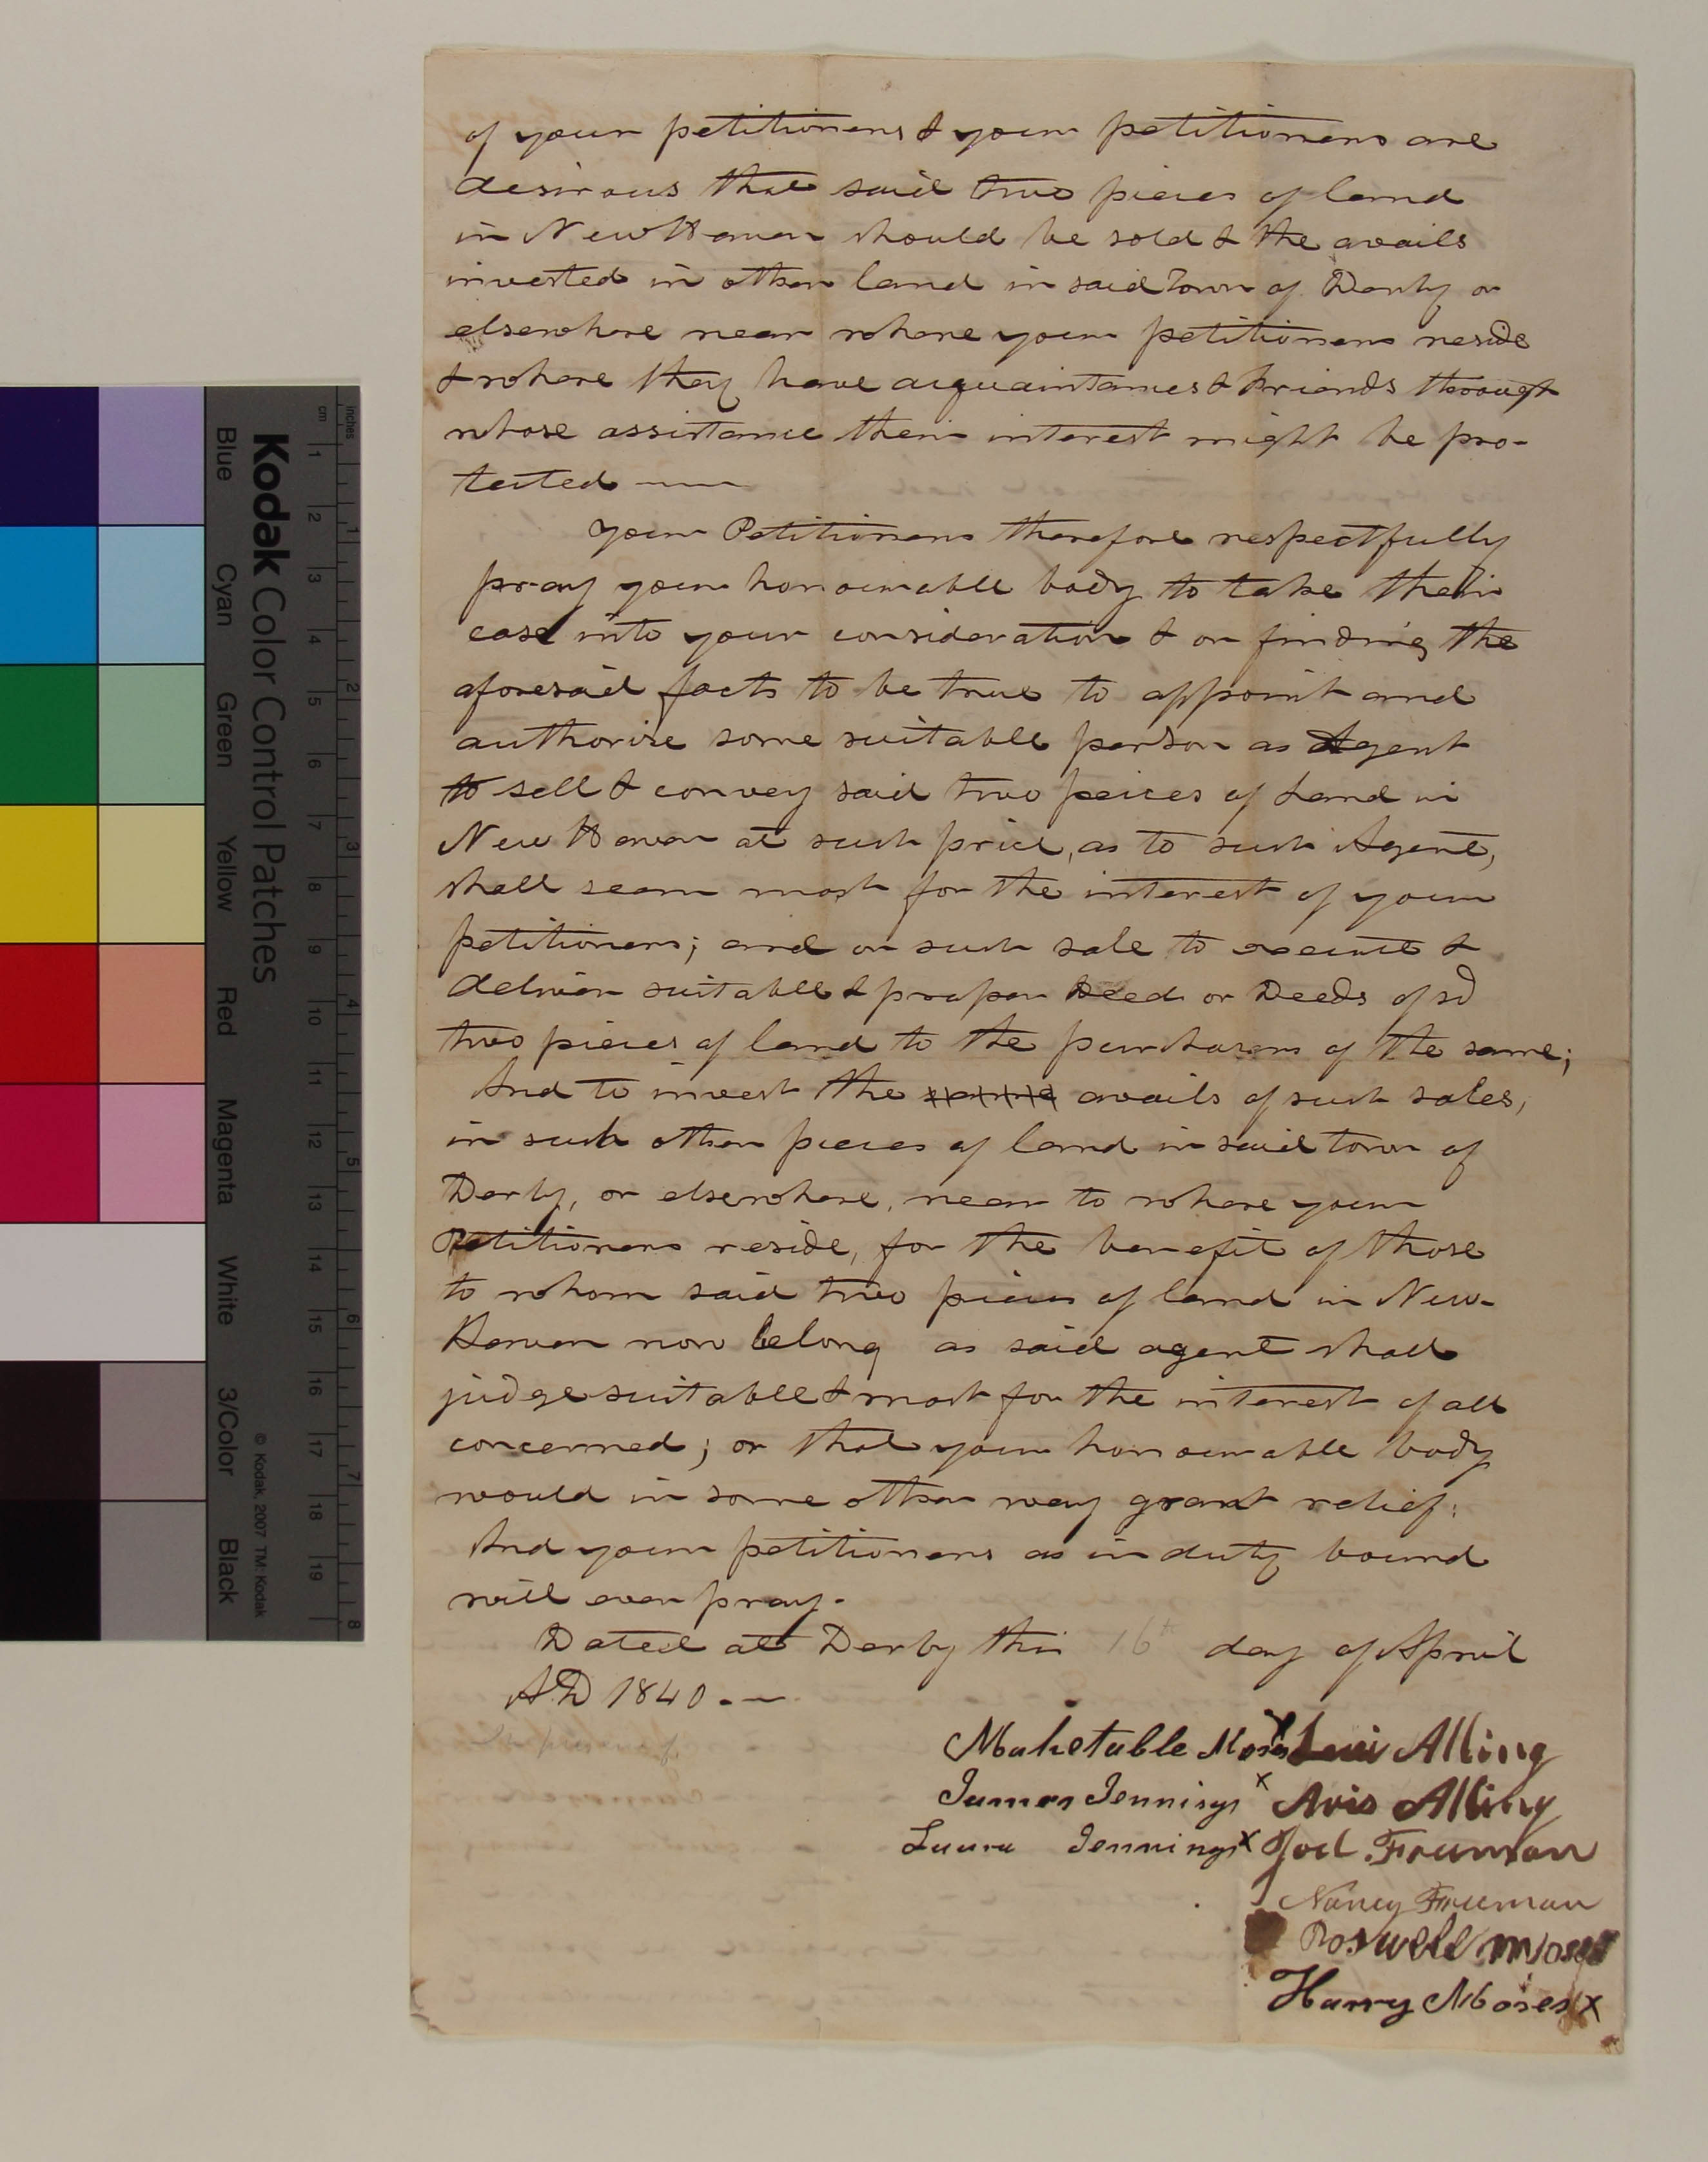 of your petitioners & your petitioners are
desirous that said two pieces of land
in New Haven should be sold & the avails
invested in other land in said Town of Derby or
elsewhere near where your petitioners reside
& where they have acquaintances & friends through
whose assistance their interest might be pro-
tected
Your Petitioners therefore respectfully
pray your honourable body to take their
case into your consideration & on finding the
aforesaid facts to be true to appoint and
authorise some suitable person as Agent
to sell & convey said two peices of Land in
New Haven at such price, as to such Agent,
shall seem most for the interest of your
petitioners; and on such sale to execute &
deliver suitable & proper Deed or Deeds of sd
two pieces of land to the purchasers of the same;
And to invest the same avails of such sales,
in such other pieces of land in said town of
Derby, or elsewhere, near to where your
Petitioners reside, for the benefit of those
to whom said two pieces of land in New-
Haven now belong as said agent shall
judge suitable & most for the interest of all
concerned; or that your honourable body
would in some other way grant relief:
And your petitioners as in duty bound
will ever pray.
Dated at Derby this 16th day of April
AD 1840.
Mahetable Moses X Levi Alling
James Jennings X Avis Alling
Laura Jennings X Joel Freeman
Nancy Freeman
Roswell Moses
Harry Moses X
Kodak Color Control Patches
© Kodak, 2007 TM: Kodak
Blue Cyan Green Yellow Red Magenta White 3/Color Black
cm 1 2 3 4 5 6 7 8 9 10 11 12 13 14 15 16 17 18 19
inches 1 2 3 4 5 6 7 8